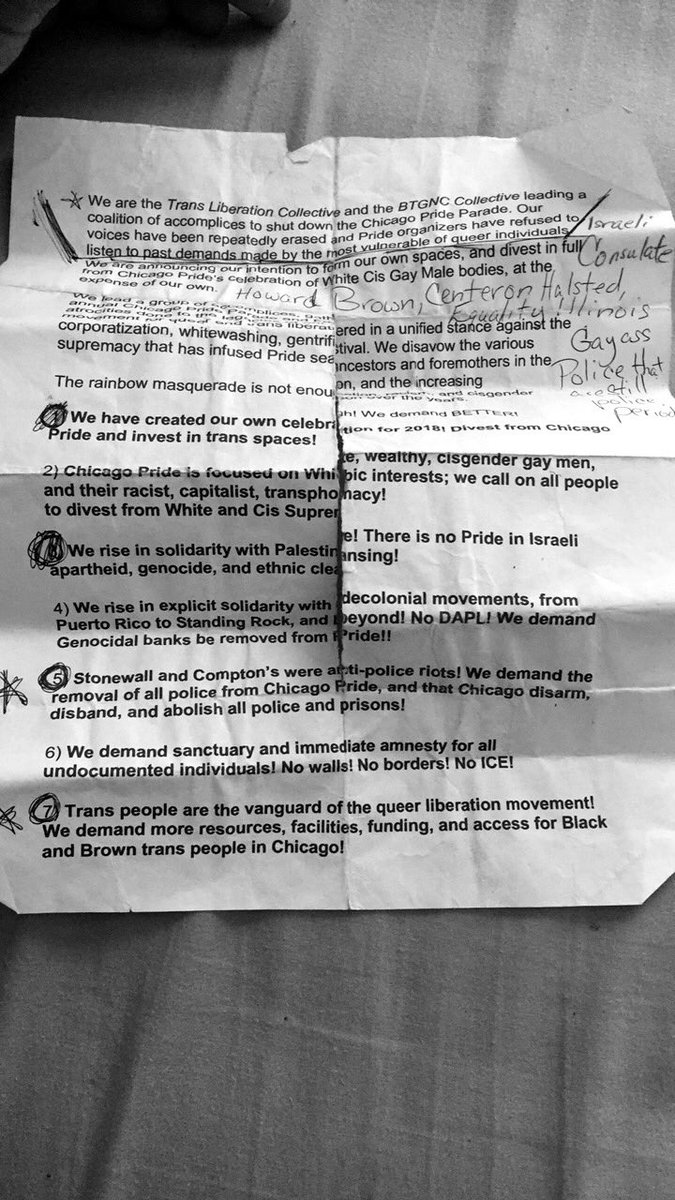 We are the Trans Liberation Collective and the BTGNC Collective leading a
coalition of accomplices to shut down the Chicago Pride Parade. Our
voices have been repeatedly erased and Pride organizers have refused to
listen to past demands made by the most vulnerable of queer individuals
Israeli
Consulate
We are announcing our intention to form our own spaces, and divest in full
from Chicago Pride's celebration of White Cis Gay Male bodies, at the
expense of our own.
Howard Brown, Center on Halsted,
Equality Illinois
We lead a group of
annual Chicago Pride
ered in a unified stance against the
corporatization, whitewashing, gentrifi stival. We disavow the various
supremacy that has infused Pride sea ancestors and foremothers in the
Gay ass
Police that
are still
police.
period
The rainbow masquerade is not enou on, and the increasing
and cisgender
over the years.
gh! We demand BETTER!
1) We have created our own celebra tion for 2018! Divest from Chicago
Pride and invest in trans spaces!
2) Chicago Pride is focused on Whi te, wealthy, cisgender gay men,
and their racist, capitalist, transpho bic interests; we call on all people
to divest from White and Cis Suprem macy!
We rise in solidarity with Palestin e! There is no Pride in Israeli
apartheid, genocide, and ethnic clea ansing!
4) We rise in explicit solidarity with decolonial movements, from
Puerto Rico to Standing Rock, and beyond! No DAPL! We demand
Genocidal banks be removed from Pride!!
5) Stonewall and Compton's were anti-police riots! We demand the
removal of all police from Chicago Pride, and that Chicago disarm,
disband, and abolish all police and prisons!
6) We demand sanctuary and immediate amnesty for all
undocumented individuals! No walls! No borders! No ICE!
7) Trans people are the vanguard of the queer liberation movement!
We demand more resources, facilities, funding, and access for Black
and Brown trans people in Chicago!